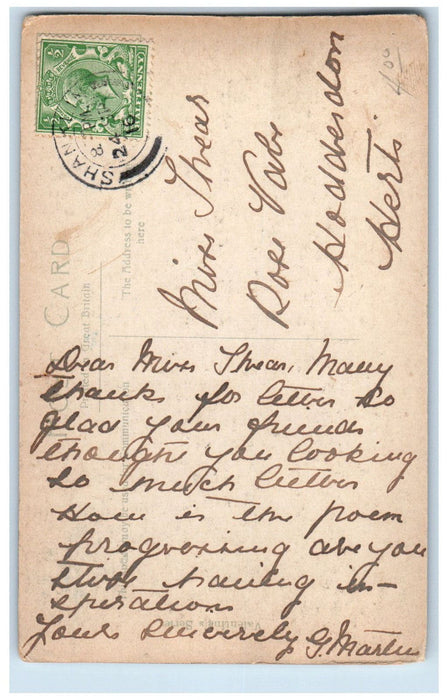 4.00
SHANKL
8
24
16
POST CARD
Great Britain
The Address to be
here
Miss Shear
Rose Vale
Hoddesdon
Herts
Dear Miss Shear, Many
thanks for letter so
glad your friends
thought you looking
so much better
How is the poem
progressing are you
still having in-
sperations
Yours Sincerely G. Martin
Valentine's Series